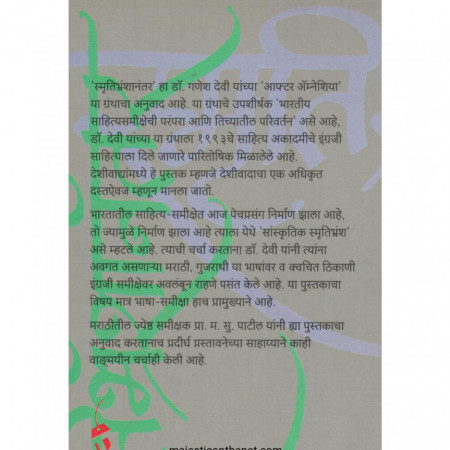 'स्मृतिभ्रंशानंतर' हा डॉ. गणेश देवी यांच्या 'आफ्टर ॲम्नेशिया'
या ग्रंथाचा अनुवाद आहे. या ग्रंथाचे उपशीर्षक 'भारतीय
साहित्यसमीक्षेची परंपरा आणि तिच्यातील परिवर्तन' असे आहे,
डॉ. देवी यांच्या या ग्रंथाला १९९३चे साहित्य अकादमीचे इंग्रजी
साहित्याला दिले जाणारे पारितोषिक मिळालेले आहे.
देशीवाद्यांमध्ये हे पुस्तक म्हणजे देशीवादाचा एक अधिकृत
दस्तऐवज म्हणून मानला जातो.
भारतातील साहित्य-समीक्षेत आज पेचप्रसंग निर्माण झाला आहे,
तो ज्यामुळे निर्माण झाला आहे त्याला येथे 'सांस्कृतिक स्मृतिभ्रंश'
असे म्हटले आहे. त्याची चर्चा करताना डॉ. देवी यांनी त्यांना
अवगत असणाऱ्या मराठी, गुजराथी या भाषांवर व क्वचित ठिकाणी
इंग्रजी समीक्षेवर अवलंबून राहणे पसंत केले आहे. या पुस्तकाचा
विषय मात्र भाषा-समीक्षा हाच प्रामुख्याने आहे.
मराठीतील ज्येष्ठ समीक्षक प्रा. म. सु. पाटील यांनी ह्या पुस्तकाचा
अनुवाद करतानाच प्रदीर्घ प्रस्तावनेच्या साहाय्याने काही
वाङ्मयीन चर्चाही केली आहे.